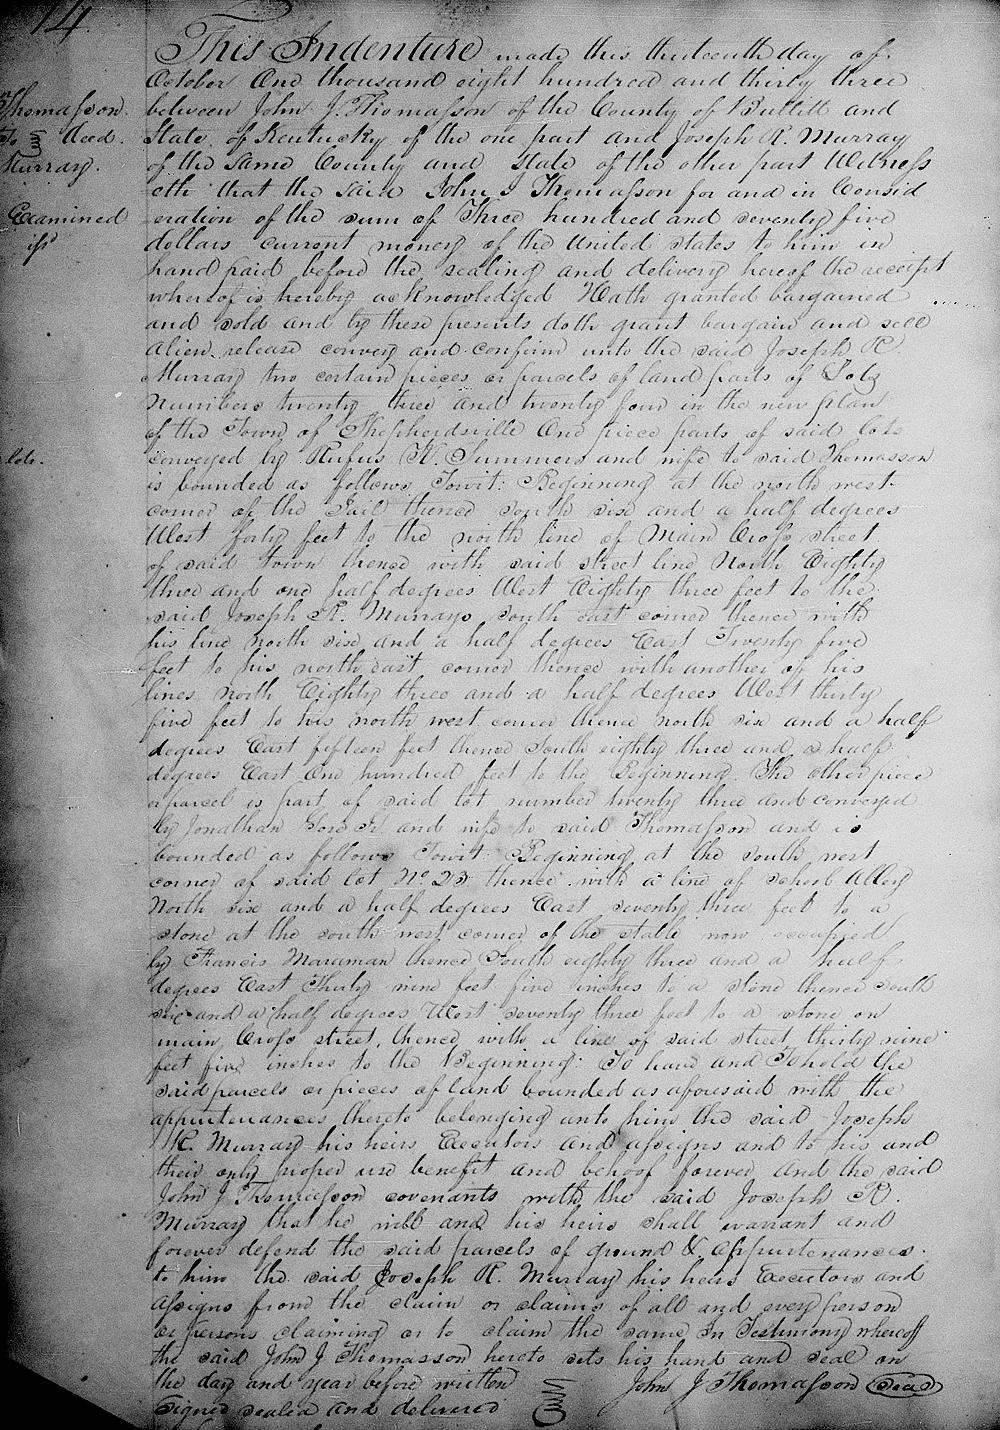 74.
This Indenture made this thirteenth day of
October One thousand eight hundred and thirty three
Thomasson. between John J. Thomasson of the County of Bullitt and
To Deed. State of Kentucky of the one part and Joseph R. Murray
Murray. of the same County and State of the other part Witness
eth that the said John J Thomasson for and in Consid
Examined eration of the sum of Three hundred and seventy five
dollars current money of the United States to him in
hand paid before the sealing and delivery hereof the receipt
whereof is hereby acknowledged Hath granted bargained
and sold and by these presents doth grant bargain and sell
alien release convey and confirm unto the said Joseph R
Murray two certain pieces or parcels of land parts of Lots
Numbers twenty three and twenty four in the new plan
of the Town of Shepherdsville One piece parts of said lots
lots. conveyed by Rufus K. Summers and wife to said Thomasson
is bounded as follows Towit: Beginning at the north west
corner of the Jail thence South six and a half degrees
West forty feet to the north line of Main Cross street
of said town thence with said street line North Eighty
three and one half degrees West Eighty three feet to the
said Joseph R. Murrays south east corner thence with
his line north six and a half degrees East Twenty five
feet to his north east corner thence with another of his
lines north Eighty three and a half degrees West thirty
five feet to his north west corner thence north six and a half
degrees East fifteen feet thence South eighty three and a half
degrees East One hundred feet to the Beginning. The other piece
or parcel is part of said lot number twenty three and conveyed
by Jonathan and wife to said Thomasson and is
bounded as follows Towit: Beginning at the south west
corner of said lot No. 23 thence with a line of Alley
North six and a half degrees East seventy three feet to a
stone at the south west corner of the stable now occupied
by Francis Maraman thence South eighty three and a half
degrees East Thirty nine feet five inches to a stone thence South
six and a half degrees West seventy three feet to a stone on
main Cross street, thence with a line of said street thirty nine
feet five inches to the Beginning: To have and To hold the
said parcels or pieces of land bounded as aforesaid with the
appurtenances thereto belonging unto him the said Joseph
R. Murray his heirs Executors and assigns and to his and
their only proper use benefit and behoof forever and the said
John J Thomasson covenants with the said Joseph R.
Murray that he will and his heirs shall warrant and
forever defend the said parcels of ground & appurtenances
to him the said Joseph R. Murray his heirs Executors and
Assigns from the claim or claims of all and every person
or persons claiming or to claim the same In Testimony whereof
the said John J Thomasson hereto sets his hand and seal on
the day and year before written John J Thomasson Seal
Signed sealed and delivered